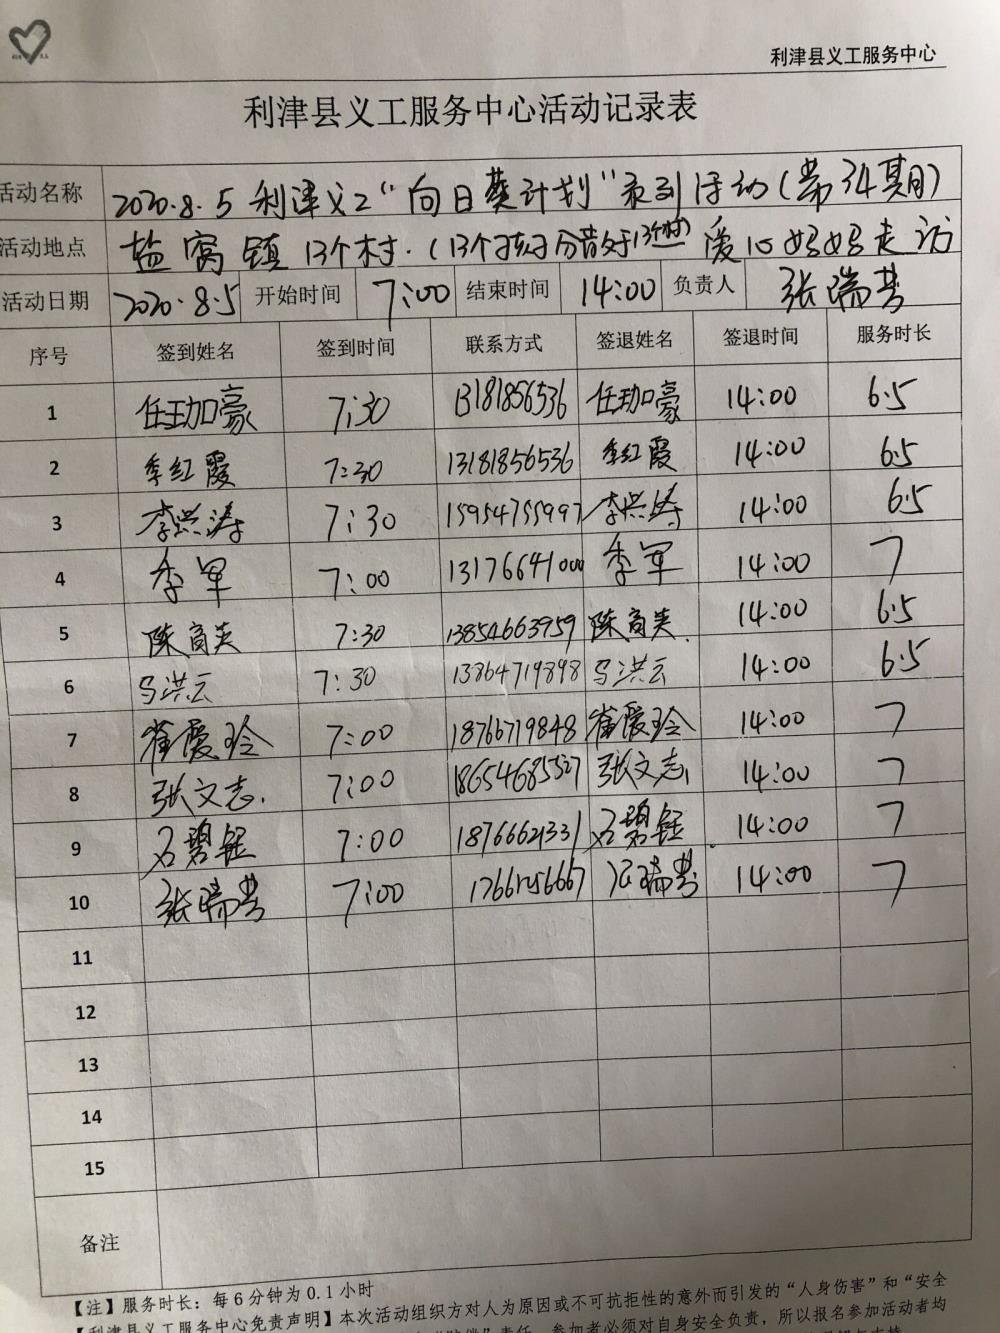 利津县义工服务中心
利津县义工服务中心活动记录表
活动名称 2020.8.5 利津义工“向日葵计划”系列活动(第34期)
活动地点 盐窝镇13个村.(13个孩子分散于13个村) 爱心妈妈走访
活动日期 2020.8.5 开始时间 7:00 结束时间 14:00 负责人 张瑞芬
序号 签到姓名 签到时间 联系方式 签退姓名 签退时间 服务时长
1 任珈豪 7:30 13181856536 任珈豪 14:00 6.5
2 季红霞 7:30 13181856536 季红霞 14:00 6.5
3 李洪涛 7:30 15954755997 李洪涛 14:00 6.5
4 季军 7:00 13176641000 季军 14:00 7
5 陈育英 7:30 13854663959 陈育英 14:00 6.5
6 马洪云 7:30 13864719898 马洪云 14:00 6.5
7 崔爱玲 7:00 18766719848 崔爱玲 14:00 7
8 张文志 7:00 18654685527 张文志 14:00 7
9 石碧钰 7:00 18766621331 石碧钰 14:00 7
10 张瑞芬 7:00 张瑞芬 14:00 7
11
12
13
14
15
备注
【注】服务时长:每6分钟为0.1小时
【利津县义工服务中心免责声明】本次活动组织方对人为原因或不可抗拒性的意外而引发的“人身伤害”和“安全
责任,参加者必须对自身安全负责,所以报名参加活动者均